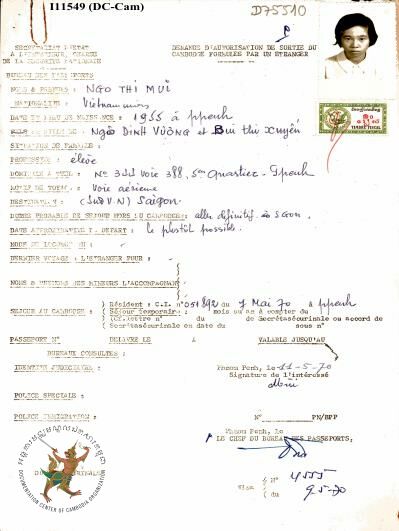 I11549 (DC-Cam)
D75510
SECRETARIAT D'ETAT
DE LA SECURITE NATIONALE
DEMANDE D'AUTORISATION DE SORTIE DU
CAMBODGE FORMULEE PAR UN ETRANGER
BUREAU DES PASSEPORTS
NOMS & PRENOMS : NGO THI MUI
NATIONALITE : Vietnamienne
DATE ET LIEU DE NAISSANCE : 1955 à ppenh
NGÔ DINH VUÒNG et BUI thi Xuyến
SITUATION DE FAMILLE :
PROFESSION : élève
voie 388, 5em Quartier - Ppenh
voie aérienne
DESTINATION : (Sud V.N) Saigon
DUREE PROBABLE DE SEJOUR HORS DU CAMBODGE : aller définitif à SGon.
DATE APPROXIMATIVE DE DEPART : le plutôt possible.
DERNIER VOYAGE A L'ETRANGER POUR :
NOMS & PRENOMS DES MINEURS L'ACCOMPAGNANT
SEJOUR AU CAMBODGE : Résident : C.I. N° 051892 du 7 Mai 70 à ppenh
Séjour temporaire : mois ou as à compter du
(cf.lettre n° du de Secrétasécurinale ou accord de
Secrétasécurinale en date du sous n°
PASSEPORT N° DELIVRE LE A VALABLE JUSQU'AU
BUREAUX CONSULTES :
IDENTITE JUDICIAIRE :
Phnom Penh, le 11-5-70
Signature de l'intéressé
Mui
POLICE SPECIALE :
POLICE IMMIGRATION :
N° PN/BPP
Phnom Penh, le
LE CHEF DU BUREAU DES PASSEPORTS,
N° 4555
du 9.5.70
DOCUMENTATION CENTER OF CAMBODIA ORGANIZATION